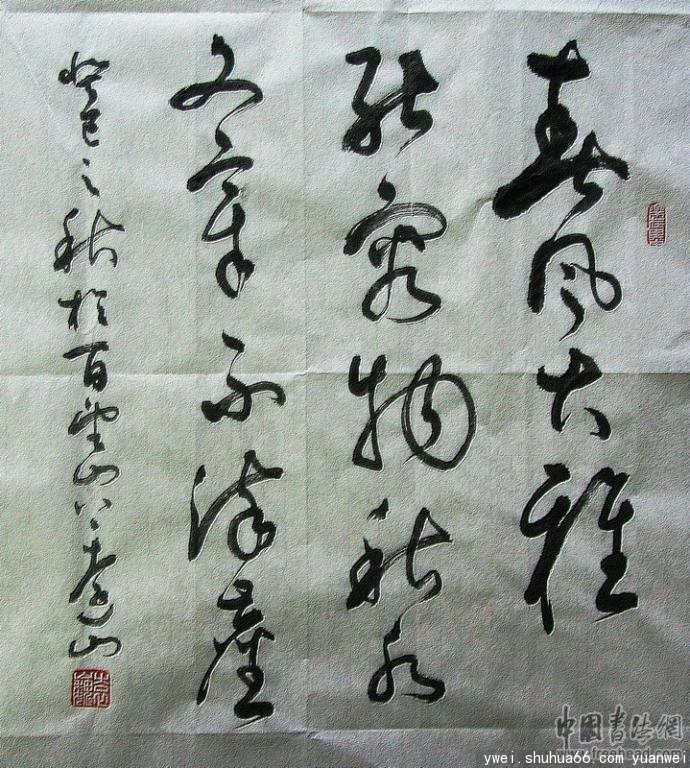 春風大雅
能容物秋水
文章不染塵
癸巳之秋於百望山下
中國書法網
ywei.shuhua66.com yuanwei